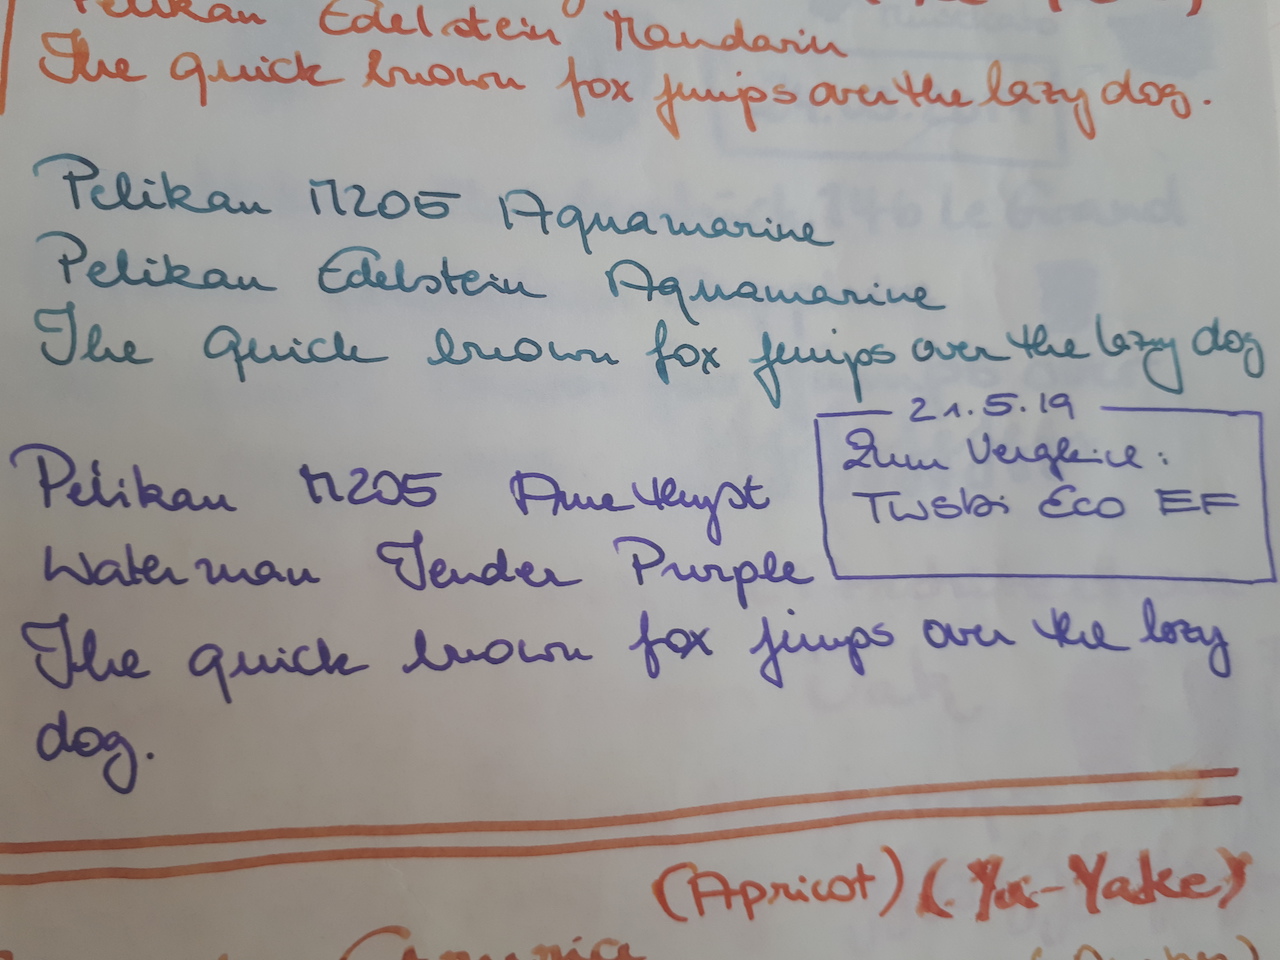 Pelikan Edelstein Mandarin
The quick brown fox jumps over the lazy dog.
Pelikan M205 Aquamarine
Pelikan Edelstein Aquamarine
The quick brown fox jumps over the lazy dog
21.5.19
Zum Vergleich:
TWSBI Eco EF
Pelikan M205 Amethyst
Waterman Tender Purple
The quick brown fox jumps over the lazy
dog.
(Apricot) (Yu-Yake)